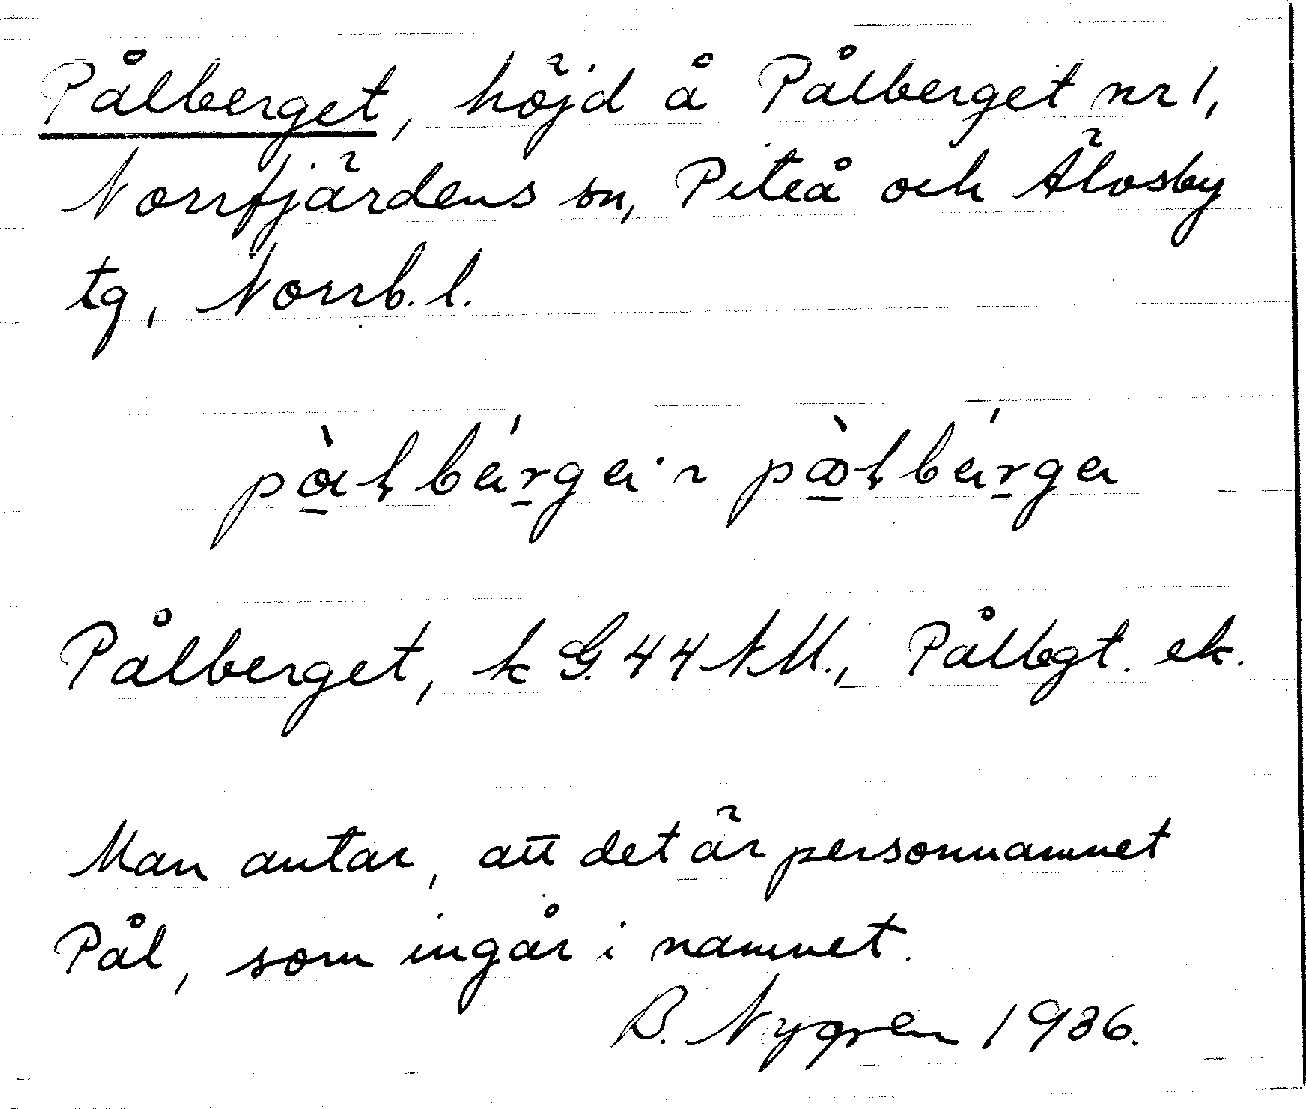 Pålberget, höjd å Pålberget nr 1,
Norrfjärdens sn, Piteå och Älvsby
tg, Norrb. l.
Pålberget, k G. 44 NM., Pålbgt. ek.
Man antar, att det är personnamnet
Pål, som ingår i namnet.
B. Nygren 1936.